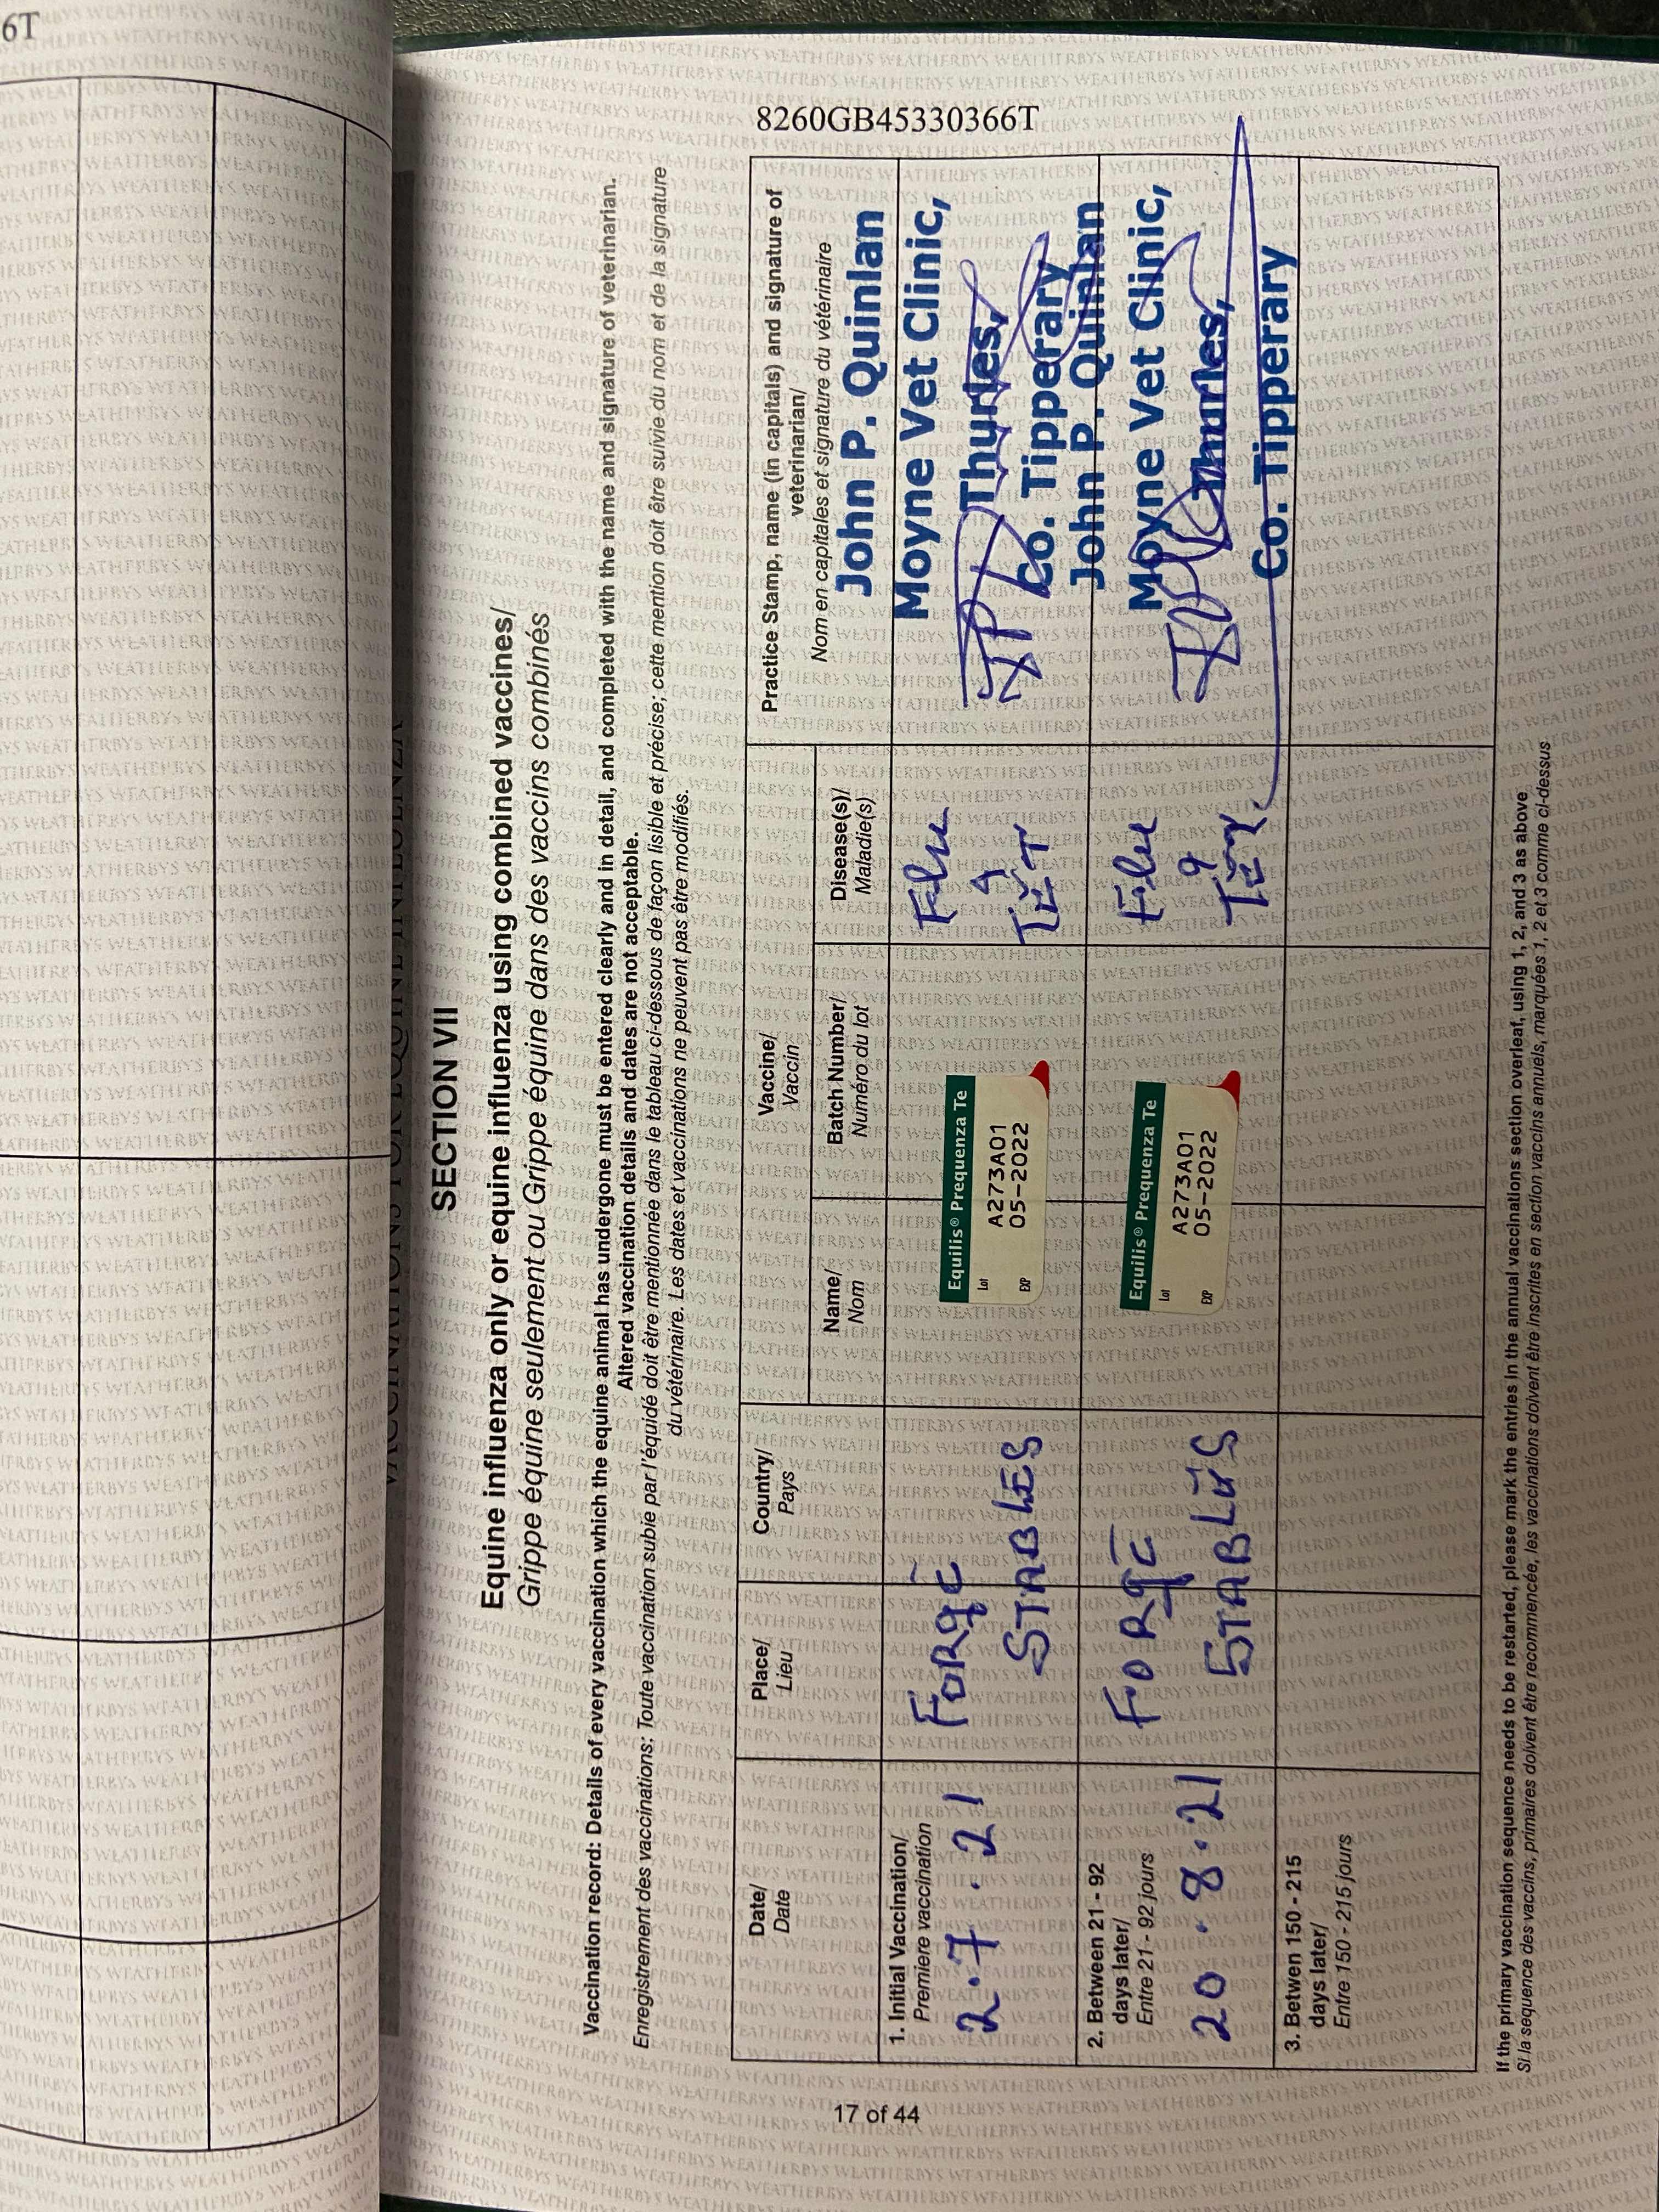 6T
8260GB45330366T
SECTION VII
Equine influenza only or equine influenza using combined vaccines/
Grippe équine seulement ou Grippe équine dans des vaccins combinés
Vaccination record: Details of every vaccination which the equine animal has undergone must be entered clearly and in detail, and completed with the name and signature of veterinarian.
Altered vaccination details and dates are not acceptable.
Enregistrement des vaccinations; Toute vaccination subie par l'équidé doit être mentionnée dans le tableau ci-dessous de façon lisible et précise; cette mention doit être suivie du nom et de la signature
du vétérinaire. Les dates et vaccinations ne peuvent pas être modifiés.
Date/
Date
Place/
Lieu
Country/
Pays
Vaccine/
Vaccin
Name/
Nom
Batch Number/
Numéro du lot
Disease(s)/
Maladie(s)
Practice Stamp, name (in capitals) and signature of
veterinarian/
Nom en capitales et signature du vétérinaire
1. Initial Vaccination/
Premiere vaccination
2.7.21
FORGE
STABLES
Equilis® Prequenza Te
Lot A273A01
EXP 05-2022
Flu
TET
John P. Quinlan
Moyne Vet Clinic,
Thurles,
Co. Tipperary
2. Between 21 - 92
days later/
Entre 21 - 92 jours
20.8.21
FORGE
STABLES
Equilis® Prequenza Te
Lot A273A01
EXP 05-2022
Flu
John P. Quinlan
Moyne Vet Clinic,
Thurles,
Co. Tipperary
3. Betwen 150 - 215
days later/
Entre 150 - 215 jours
If the primary vaccination sequence needs to be restarted, please mark the entries in the annual vaccinations section overleaf, using 1, 2, and 3 as above.
Si la sequence des vaccins, primaires doivent être recommencée, les vaccinations doivent être inscrites en section vaccins annuels, marquées 1, 2 et 3 comme ci-dessus
17 of 44